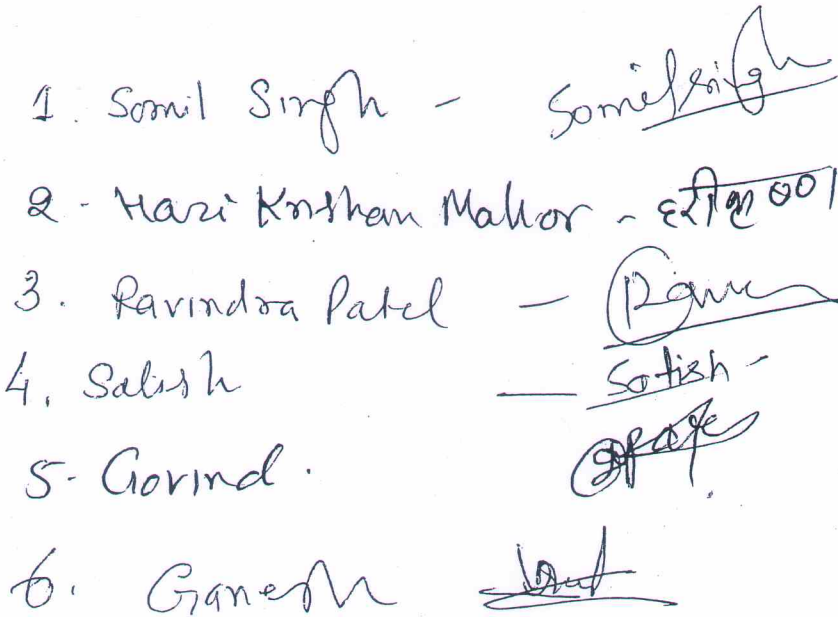 1. Somil Singh - Somil Singh
2 - Hari Krishan Mahor - हरीकृष्ण
3. Ravindra Patel -
4. Satish — Satish -
5- Govind.
6. Ganesh